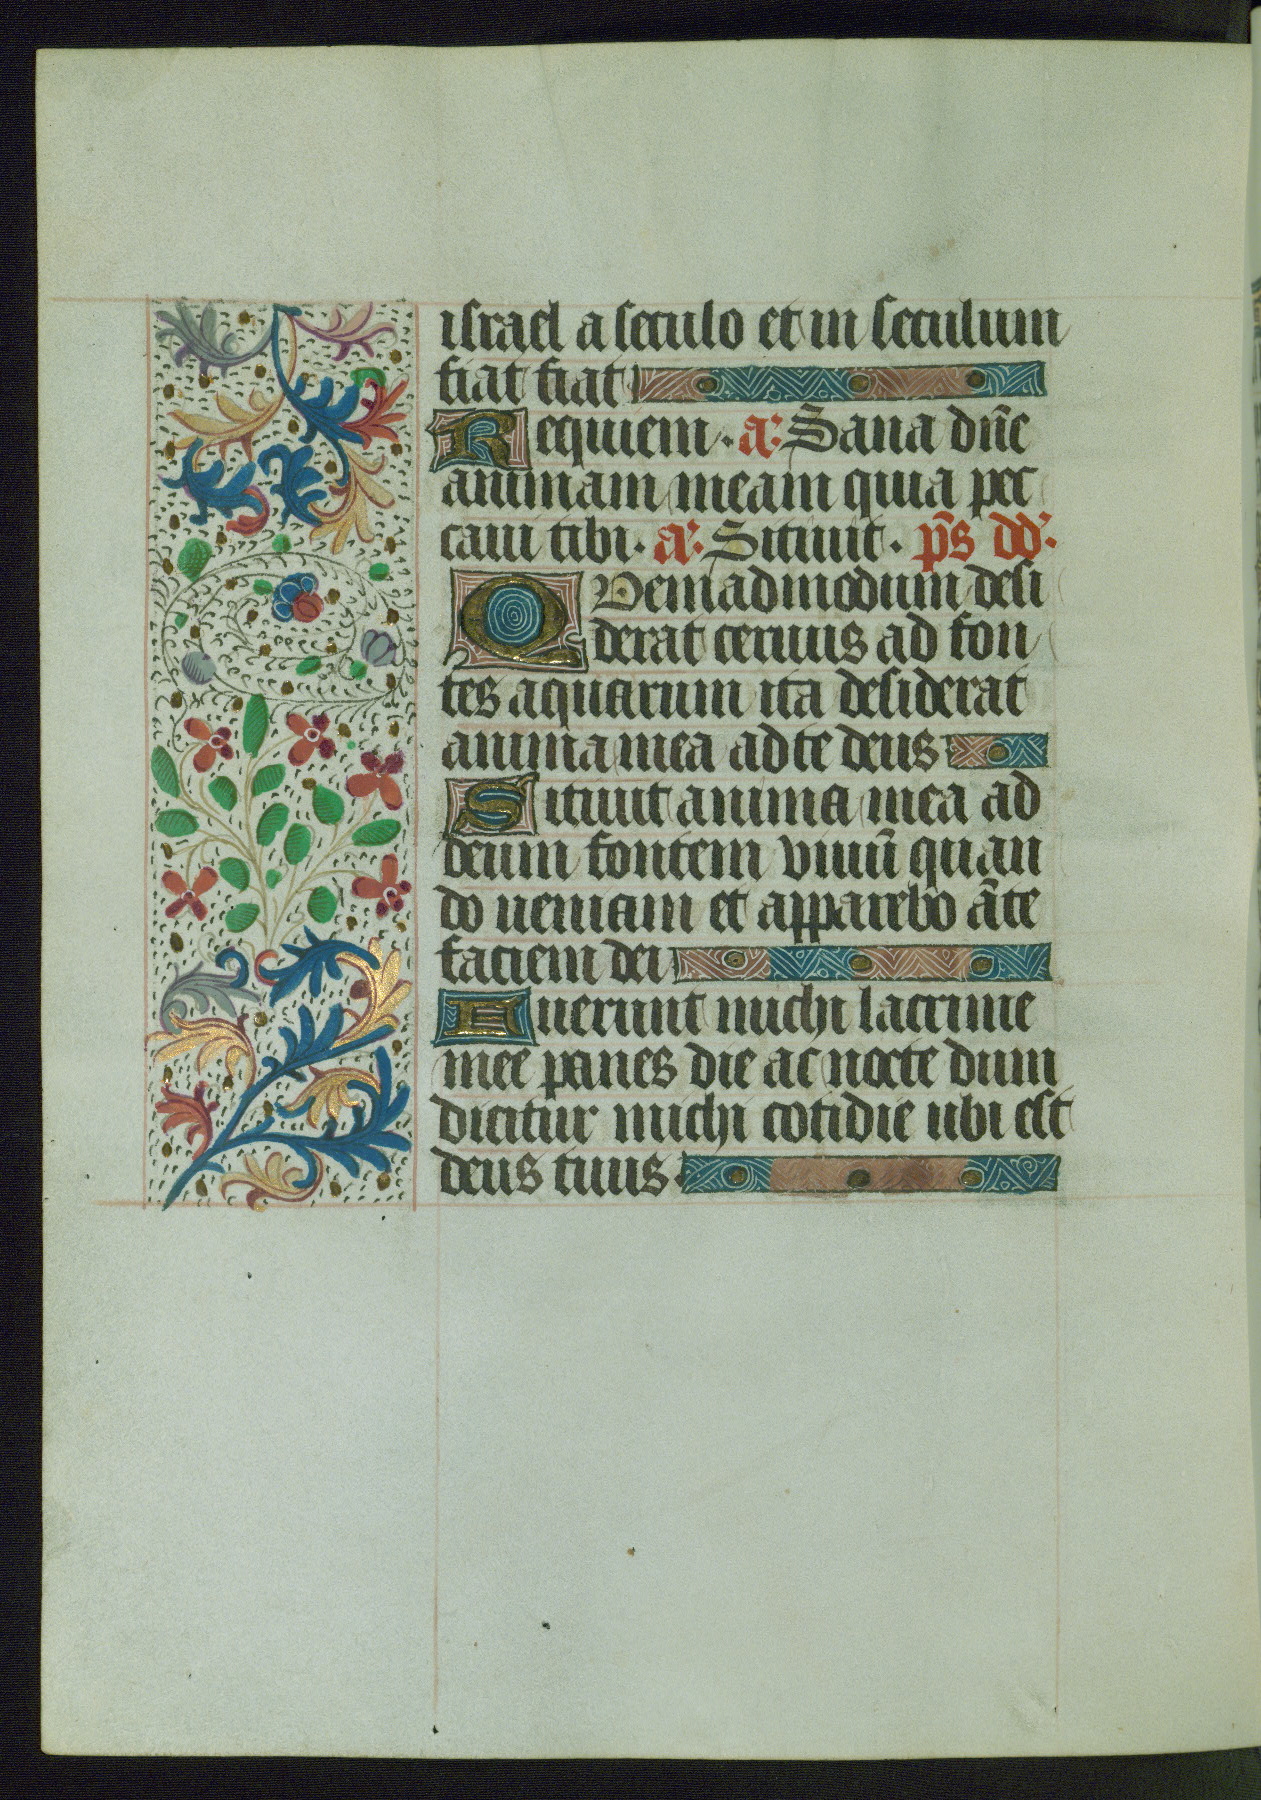 israel a seculo et in seculum
fiat fiat
Requiem · a: Sana dñe
animam meam quia pec
caui tibi · a: Sitiuit · ps̄ dd:
QVemadmodum desi
derat ceruus ad fon
tes aquarum ita desiderat
anima mea ad te deus
Sitiuit anima mea ad
deum fontem viuū quan
do ueniam et apparebo āte
faciem dei
Fuerunt michi lacrime
mee panes die ac nocte dum
dicitur michi cotidie ubi est
deus tuus ·